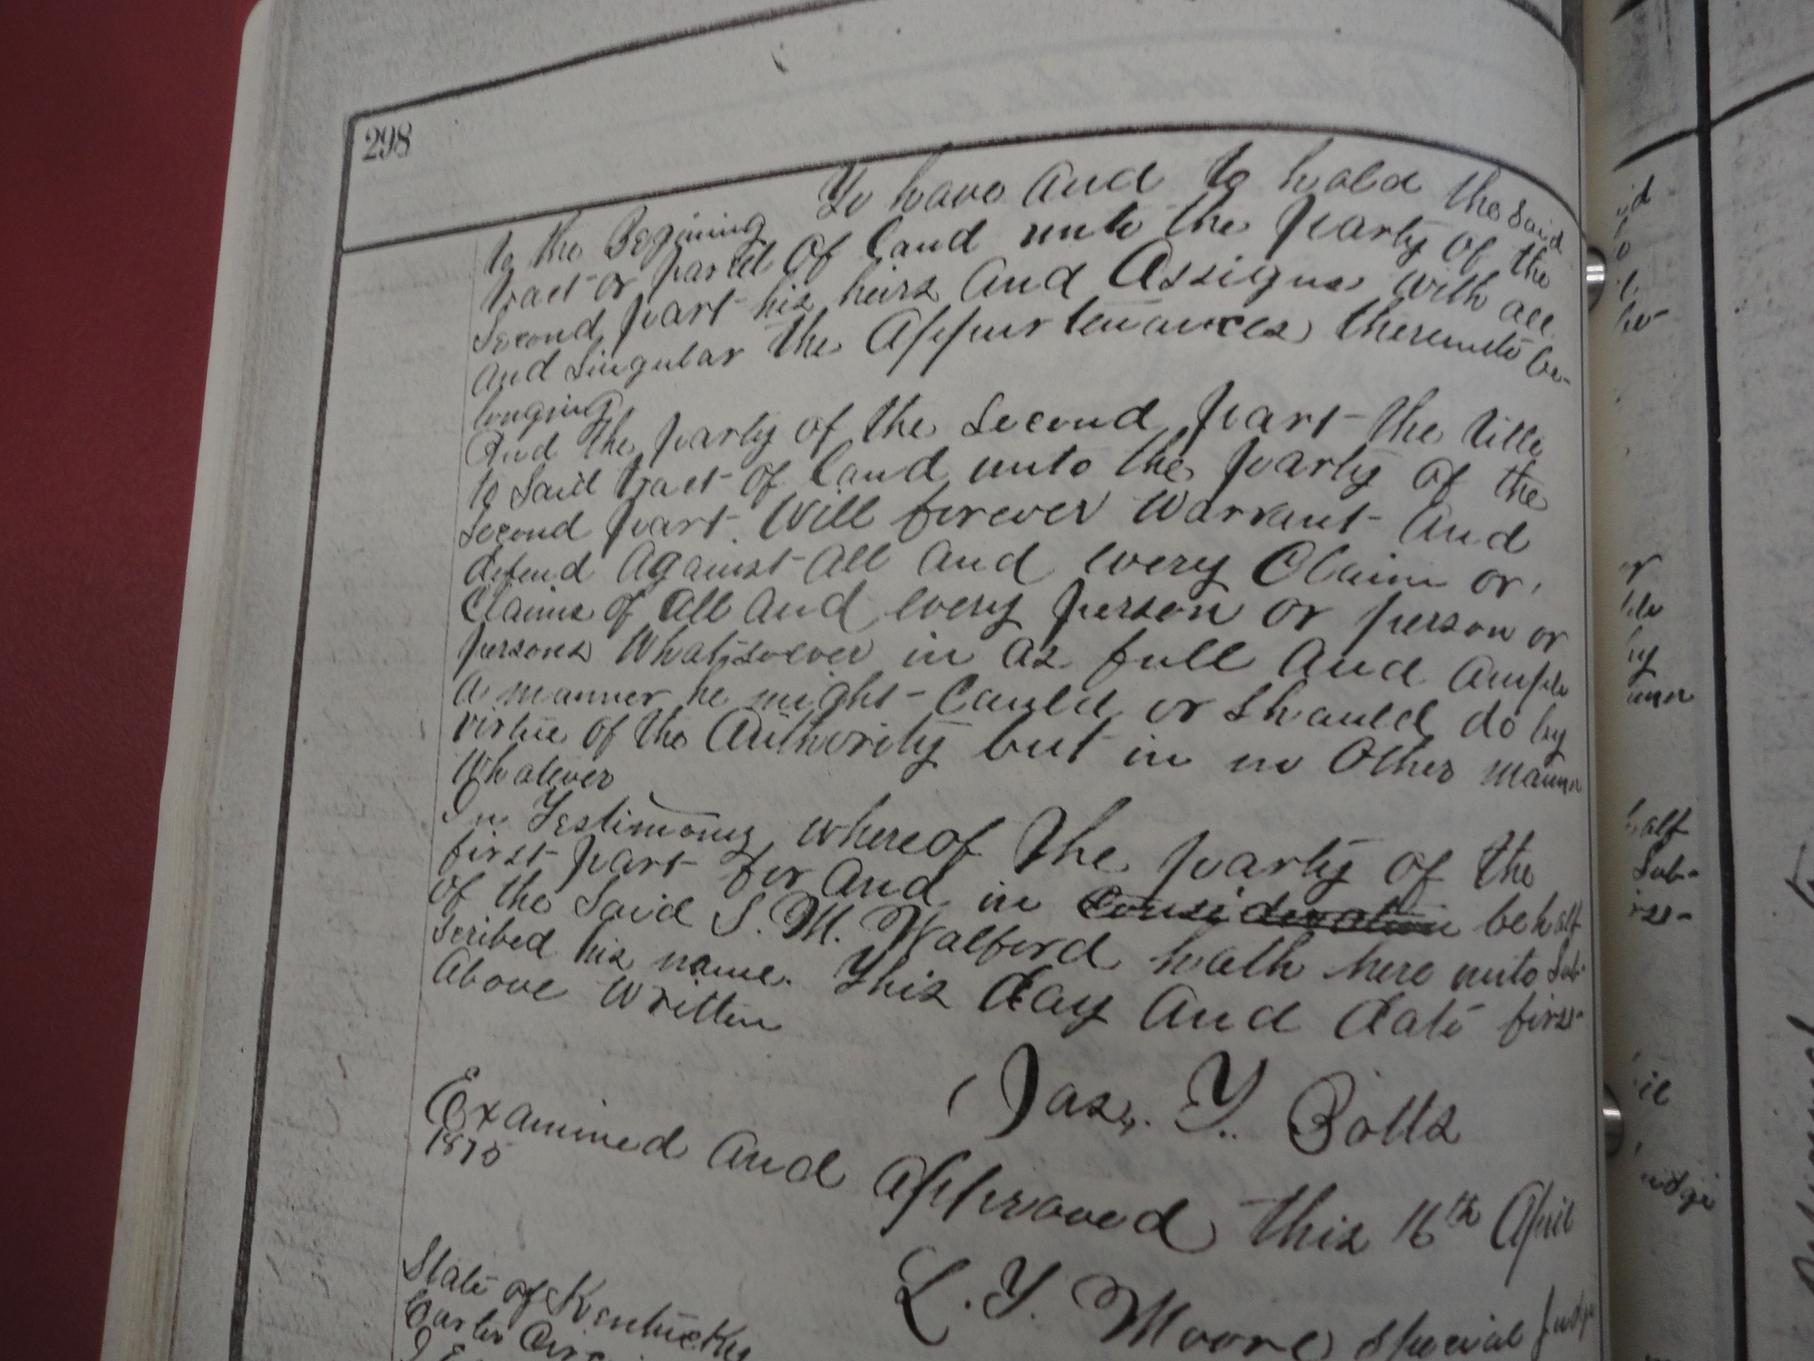 298
to the Begining To have And to hold the said
tract or parcel Of land unto the party of the
Second part his heirs And Assigns with all
And Singular the Appurtenances thereunto be-
longing
And the party of the Second part the title
to Said tract of land unto the party of the
Second part. Will forever Warrant And
defend Against All And every Claim or
Claims of All And every person or person or
persons Whatsoever in as full And Ample
A manner he might Could or Should do by
virtue of the Authority but in no Other manner
Whatever
In Testimony whereof The party of the
first part for And in consideration behalf
of the Said S. M. Walford hath here unto Sub-
scribed his name. This day And date first
Above Written
Jas. Y. Botts
Examined And Approved this 16th April
1875
L. Y. Moore Special Judge
State of Kentucky
Carter